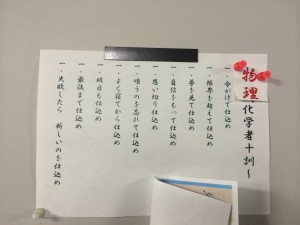 物理化学者十訓〜
一・命がけで仕込め
一・限界を超えて仕込め
一・夢を見て仕込め
一・自信をもって仕込め
一・思い切り仕込め
一・喰うのを忘れて仕込め
一・よく寝てから仕込め
一・明日も仕込め
一・最後まで仕込め
一・失敗したら 新しいのを仕込め